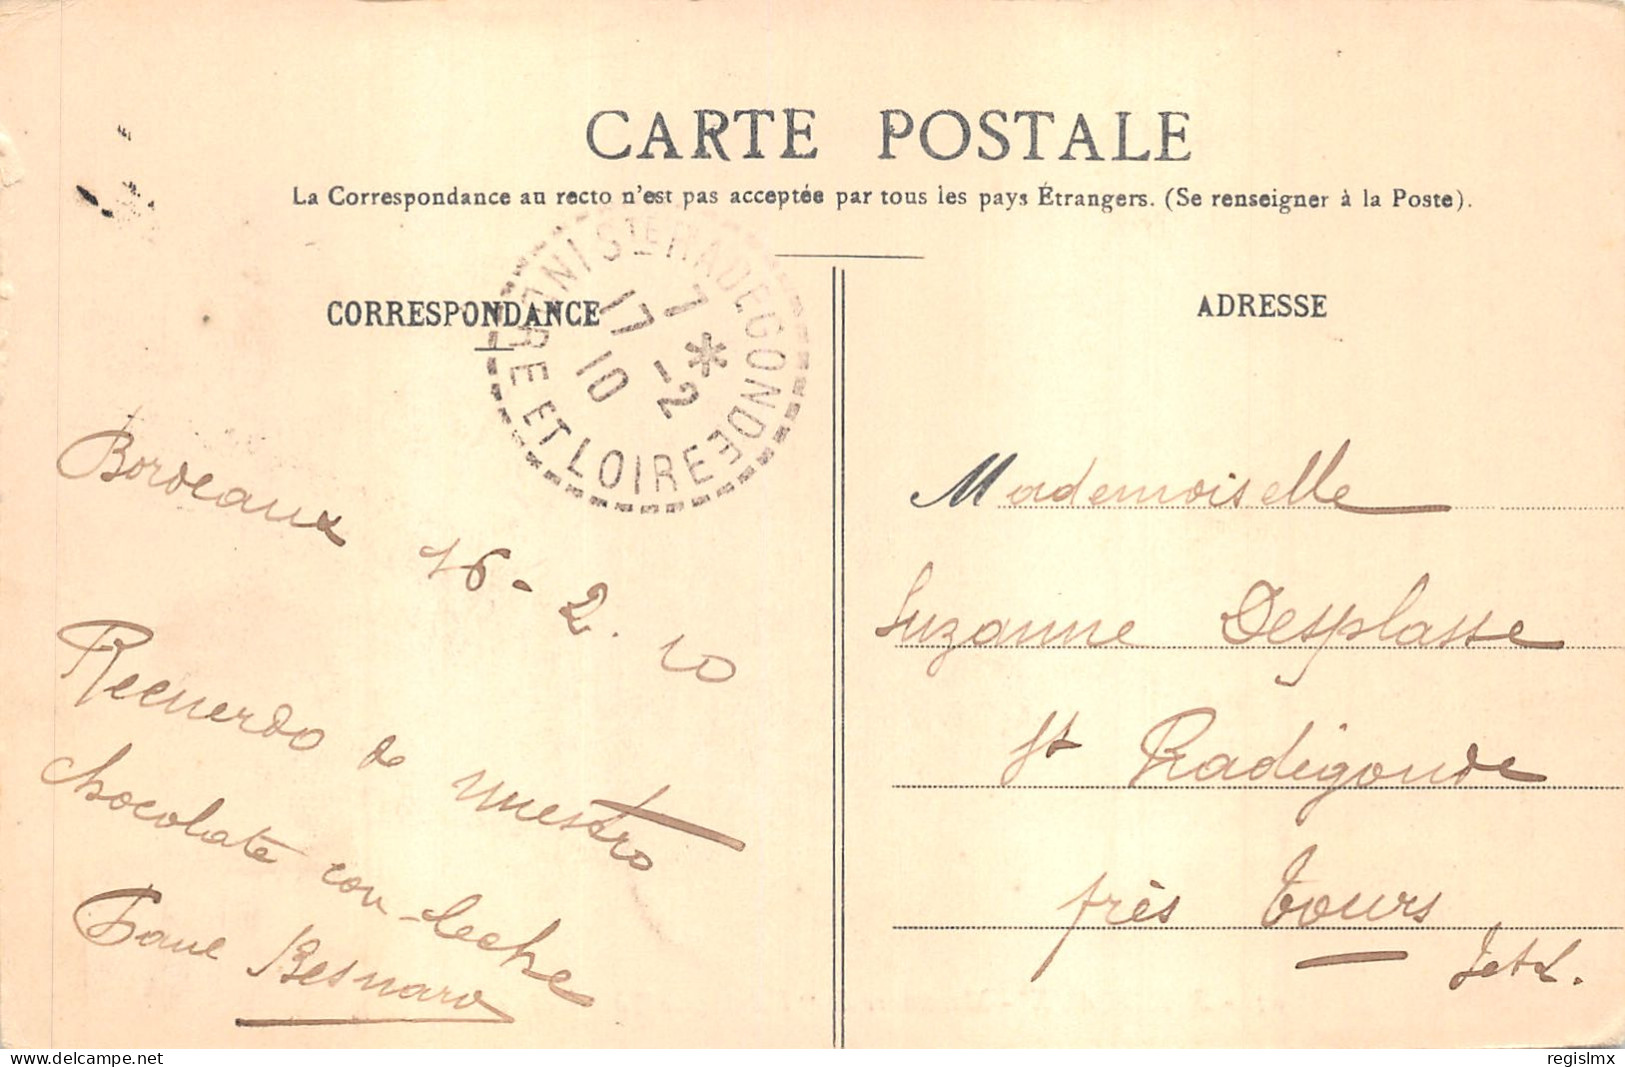 CARTE POSTALE
La Correspondance au recto n'est pas acceptée par tous les pays Étrangers. (Se renseigner à la Poste).
CORRESPONDANCE
STE RADEGONDE
17 7
10 -2 *
ET LOIRE
Bordeaux 16-2.10
Recuerdo de nuestro
chocolate con leche
Besnard
ADRESSE
Mademoiselle
Suzanne Desplasse
St Radégonde
près Tours
I et L.
delcampe.net
regislmx